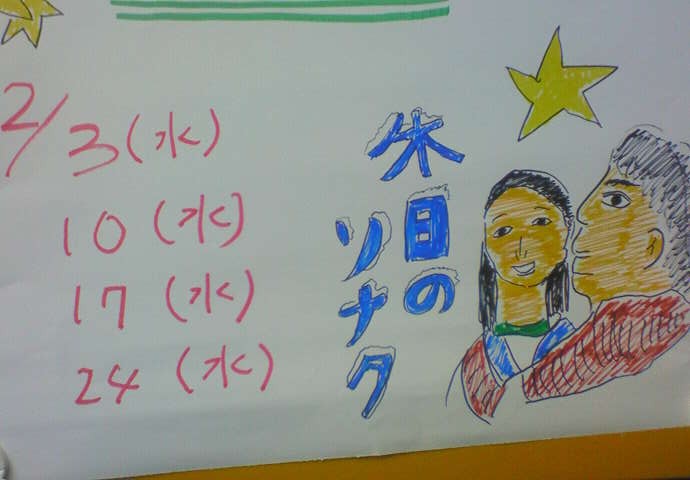 2/3(水)
10(水)
17(水)
24(水)
休日の
ソナタ